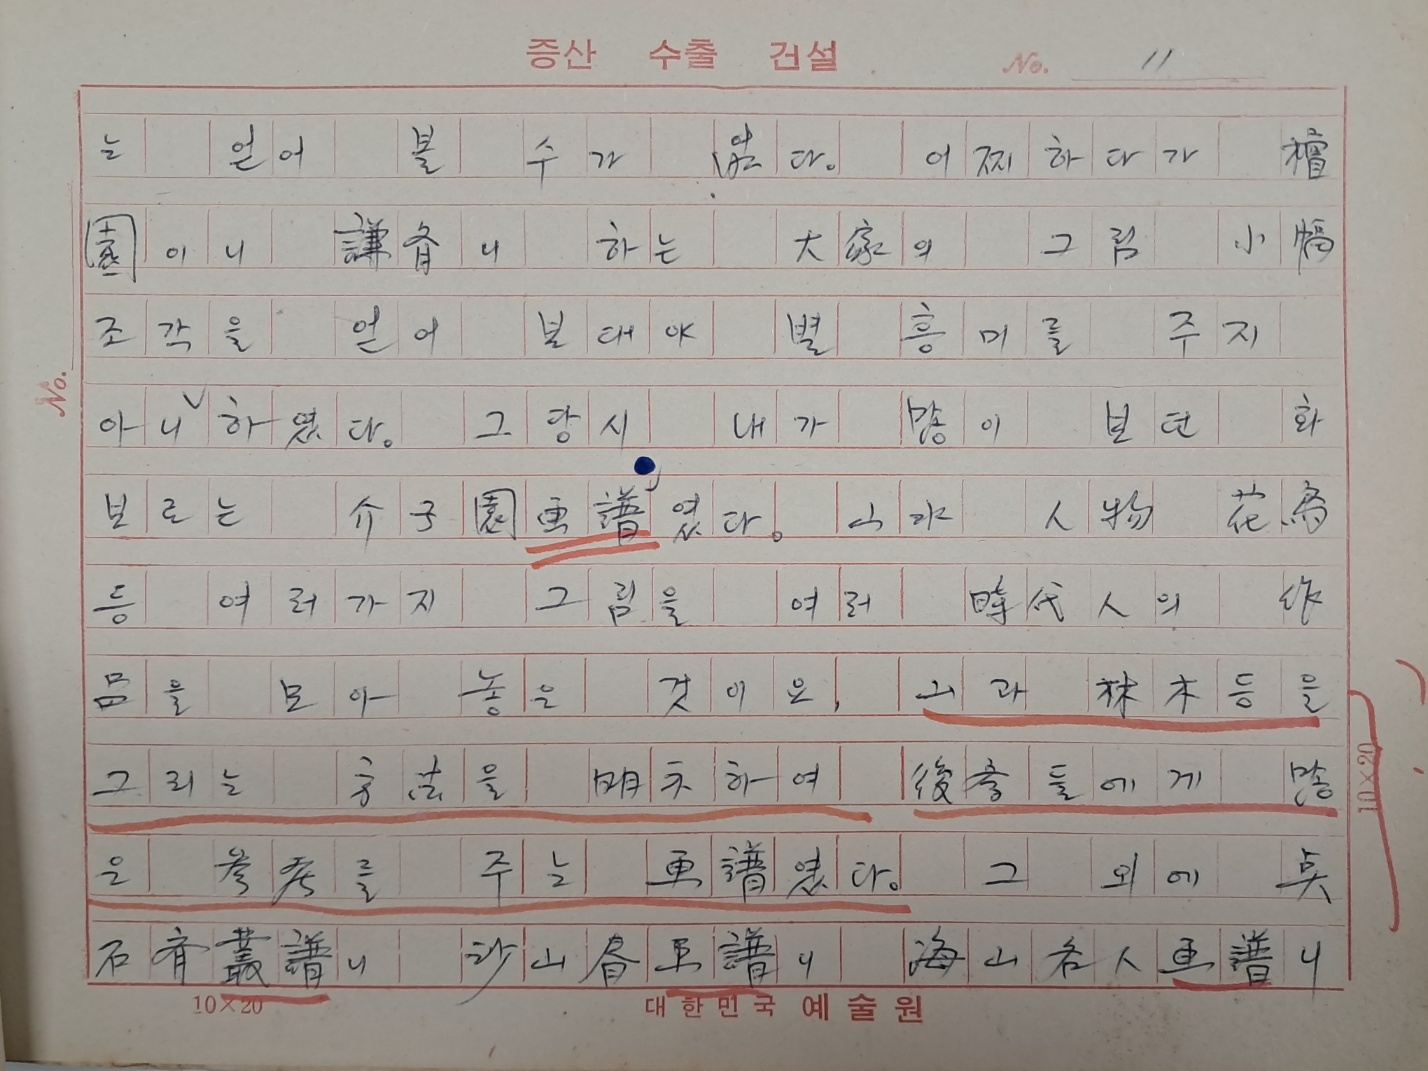 증산 수출 건설
No. 11
는 얻어 볼 수가 없다. 어찌하다가 檀
園이니 謙齋니 하는 大家의 그림 小幅
조각을 얻어 보대야 별 흥미를 주지
아니하였다. 그 당시 내가 많이 보던 화
보로는 介子園画譜였다. 山水 人物 花鳥
등 여러가지 그림을 여러 時代人의 作
품을 모아 놓은 것이요, 山과 林木등을
그리는 方法을 明示하여 後學들에게 많
은 参考를 주는 画譜였다. 그 외에 点
石斎叢譜니 沙山春画譜니 海山名人画譜니
No.
10×20
10×20
대한민국 예술원